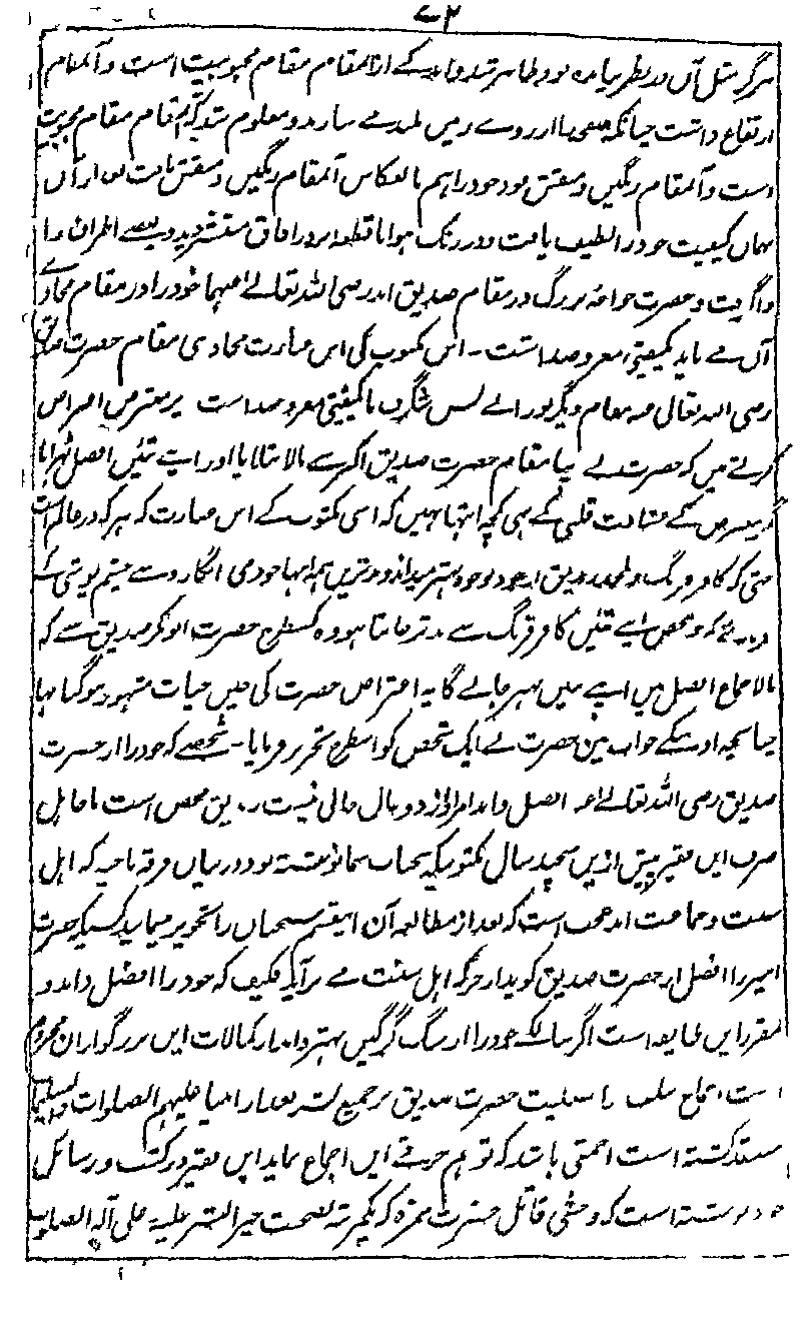 ۷۲
ہرگز مثل آں در نظر نیامدہ بود ظاہر شد و کہ آنمقام مقام محبوبیت است و آنمقام
ارتفاع داشت چنانکہ صفہ را از روے زمین بلند مے سازند و معلوم شد کہ آنمقام مقام محبوبیت
است و آنمقام رنگین و منقش بود خود را ہم بانعکاس آنمقام رنگین و منقش یافت بعد ازآں
ہماں کیفیت خود را لطیف یافت و در رنگ ہوا یا قطعہ ابر در آفاق منتشر دید و بعضے اطراف را
واگرفت و حضرت خواجہ بزرگ در مقام صدیق اند رضی اللہ تعالے عنہما و خود را در مقام محاذے
آں مے یابد بکیفیتے معروضداشت۔ اس مکتوب کی اس عبارت محاذی مقام حضرت صدیق
رضی اللہ تعالی عنہ مقام دیگر نورانے بس شگرف باکیفیتے معروضداشت پر معترض اعتراض
کرتے ہیں کہ حضرت نے اپنا مقام حضرت صدیق اکبر سے بالا بتلایا اور اپنے تئیں افضل ٹہرایا
مگر معترض کے شقاوت قلبی کے ہی کچہ انتہا نہیں کہ اسی مکتوب کے اس عبارت کہ ہر کہ در عالم است
حتی کہ کافر فرنگ و ملحد و زندیق از خود بوجوہ بہتر میداند و بدترین ہمہ اینہا خود می انگارد سے چشم پوشی کے
ورنہ جو شخص اپنے تئیں کافر فرنگ سے بدتر جانتا ہو وہ کسطرح حضرت ابوبکر صدیق سے کہ
بالاجماع افضل ہیں اپنے تئیں بہتر جانے گا یہ اعتراض حضرت کی حین حیات مشہور ہو گیا تہا
چنانچہ اوسکے جواب میں حضرت نے ایک شخص کو اسطرح تحریر فرمایا۔ شخصے کہ خود را از حضرت
صدیق رضی اللہ تعالے عنہ افضل داند امر او از دو حال خالی نیست زندیق محض است یا جاہل
صرف ایں فقیر پیش ازیں بچند سال مکتوبیکہ بجناب شما نوشتہ بود در بیان فرقہ ناجیہ کہ اہل
سنت و جماعت اند عجب است کہ بعد از مطالعہ آن اینقسم سخناں را تجویز مینماید کسیکہ حضرت
امیر را افضل از حضرت صدیق گوید از جرگہ اہل سنت مے برآید فکیف کہ خود را افضل داند و
مقرر ایں طایفہ است اگر سالکے خود را از سگ گرگین بہتر داند از کمالات ایں بزرگواران محروم
است اجماع سلف را افضلیت حضرت صدیق بر جمیع بشر بعد از انبیا علیہم الصلوات والتسلیمات
منعقد گشتہ است احمقی باشد کہ توہم خرق ایں اجماع نماید ایں فقیر در کتب و رسائل
خود نوشتہ است کہ وحشی قاتل حضرت حمزہ کہ یکمرتبہ بصحبت خیر البشر علیہ و علی آلہ الصلوات